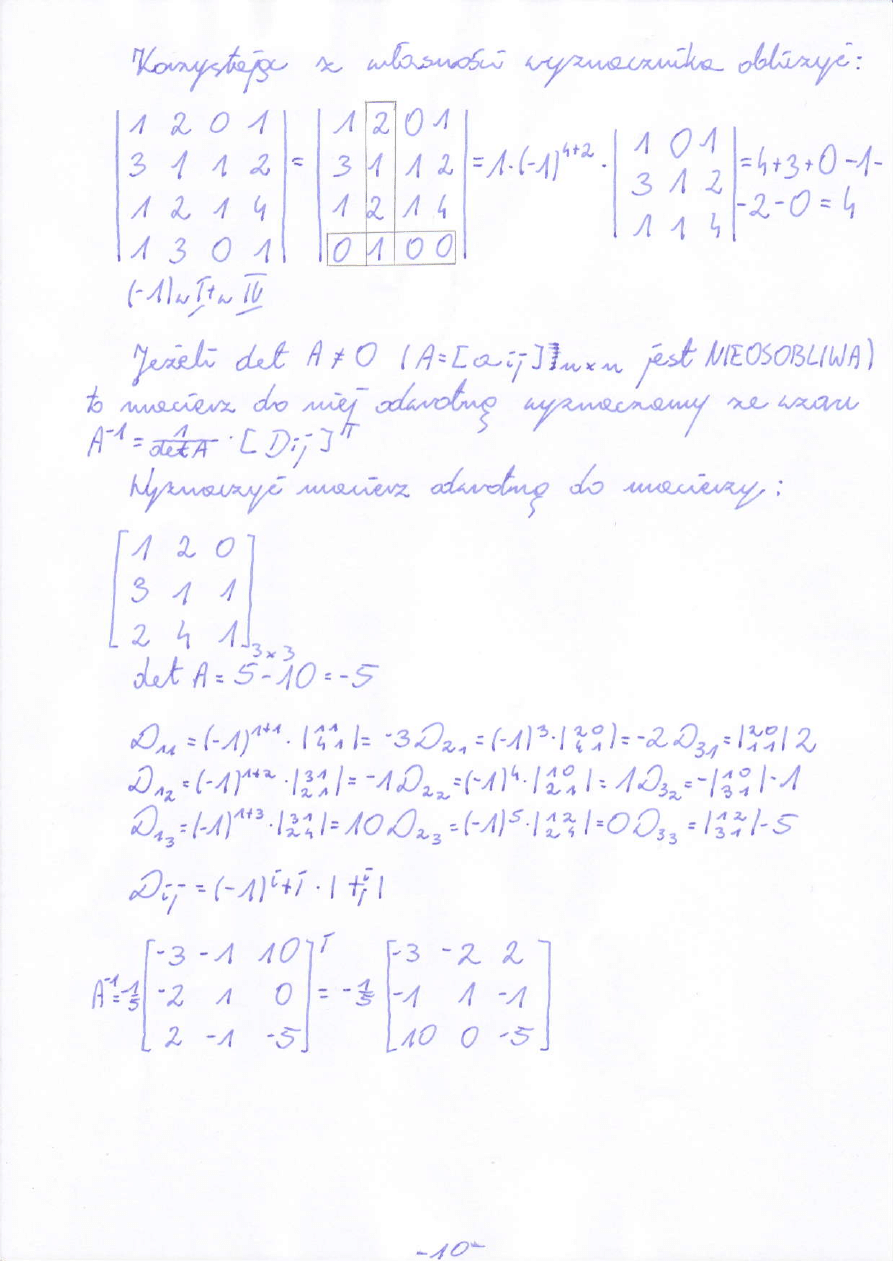 Korzystając z własności wyznacznika obliczyć:
|1 2 0 1| |1 2 0 1|
|3 1 1 2| = |3 1 1 2| = 1·(-1)^{4+2} · |1 0 1| = 4+3+0-1-
|1 2 1 4| |1 2 1 4| |3 1 2| -2-0 = 4
|1 3 0 1| |0 1 0 0| |1 1 4|
(-1)w I + w IV
Jeżeli det A ≠ 0 (A=[a ij]n×n jest NIEOSOBLIWA)
to macierz do niej odwrotną wyznaczamy ze wzoru
A^{-1} = 1/det A · [Dij]^T
Wyznaczyć macierz odwrotną do macierzy:
[1 2 0]
[3 1 1]
[2 4 1]3×3
det A = 5-10 = -5
D₁₁ = (-1)^{1+1} · |1 1; 4 1| = -3 D₂₁ = (-1)^3 · |2 0; 4 1| = -2 D₃₁ = |2 0; 1 1| 2
D₁₂ = (-1)^{1+2} · |3 1; 2 1| = -1 D₂₂ = (-1)^4 · |1 0; 2 1| = 1 D₃₂ = -|1 0; 3 1| -1
D₁₃ = (-1)^{1+3} · |3 1; 2 4| = 10 D₂₃ = (-1)^5 · |1 2; 2 4| = 0 D₃₃ = |1 2; 3 1| -5
Dij = (-1)^{i+j} · | +ij |
[-3 -1 10]^T [-3 -2 2]
A^{-1} = -1/5 [-2 1 0] = -1/5 [-1 1 -1]
[2 -1 -5] [10 0 -5]
-10-